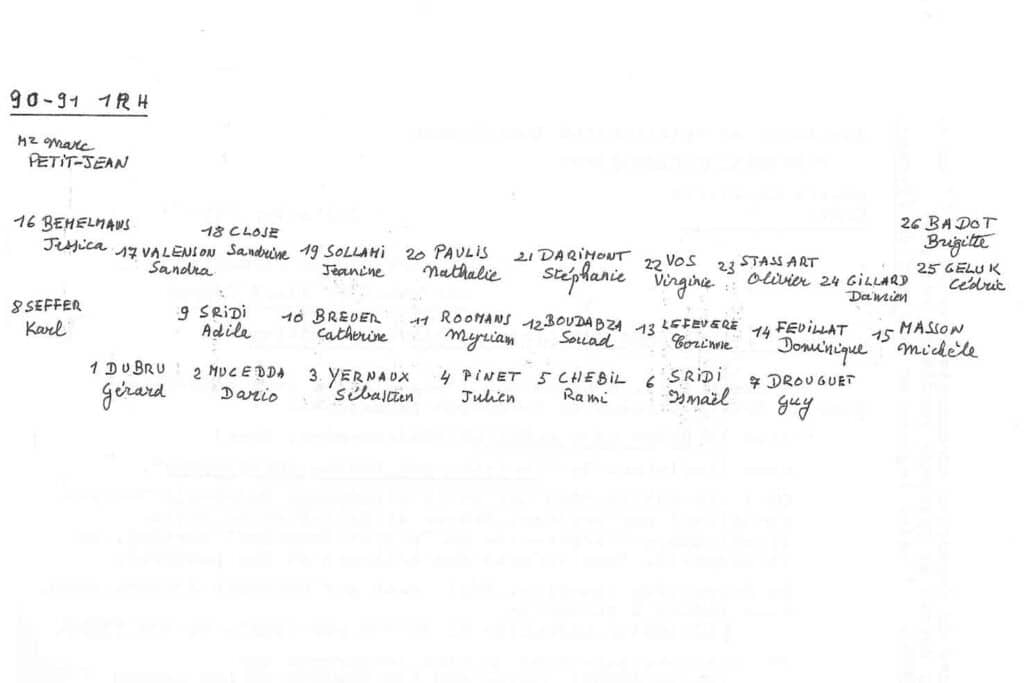 90-91 1RH
Mr Marc
PETIT-JEAN
16 BEMELMANS
Jessica
17 VALENSON
Sandra
18 CLOSE
Sandrine
19 SOLLAMI
Jeanine
20 PAULIS
Nathalie
21 DARIMONT
Stéphanie
22 VOS
Virginie
23 STASSART
Olivier
24 GILLARD
Damien
25 GELUK
Cédric
26 BADOT
Brigitte
8 SEFFER
Karl
9 SRIDI
Adila
10 BREUER
Catherine
11 ROOMANS
Myriam
12 BOUDABZA
Souad
13 LEFEVERE
Corinne
14 FEUILLAT
Dominique
15 MASSON
Michèle
1 DUBRU
Gérard
2 MUCEDDA
Dario
3 YERNAUX
Sébastien
4 PINET
Julien
5 CHEBIL
Rami
6 SRIDI
Ismaël
7 DROUGUET
Guy